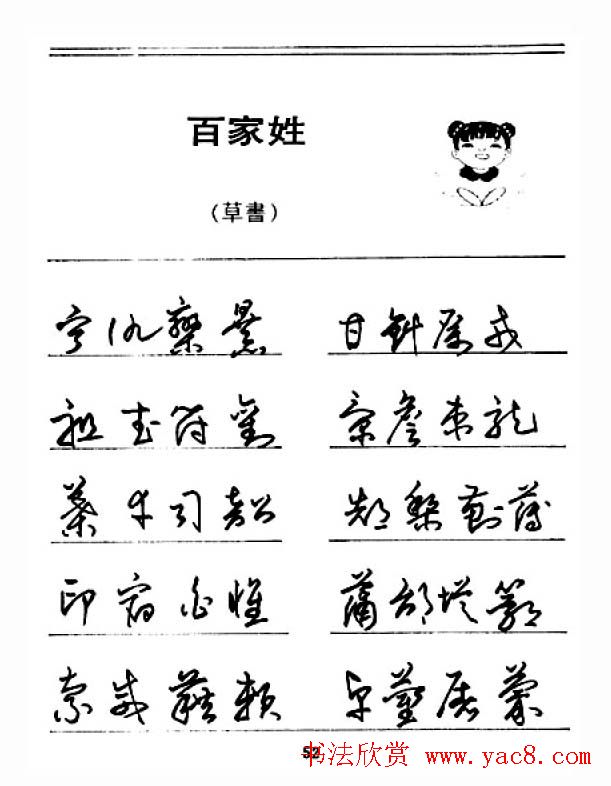 百家姓
(草書)
寧仇欒暴 甘鈄厲戎
祖武符劉 景詹束龍
葉幸司韶 郜黎薊薄
印宿白懷 蒲邰從鄂
索咸籍賴 卓藺屠蒙
52
书法欣赏 www.yac8.com